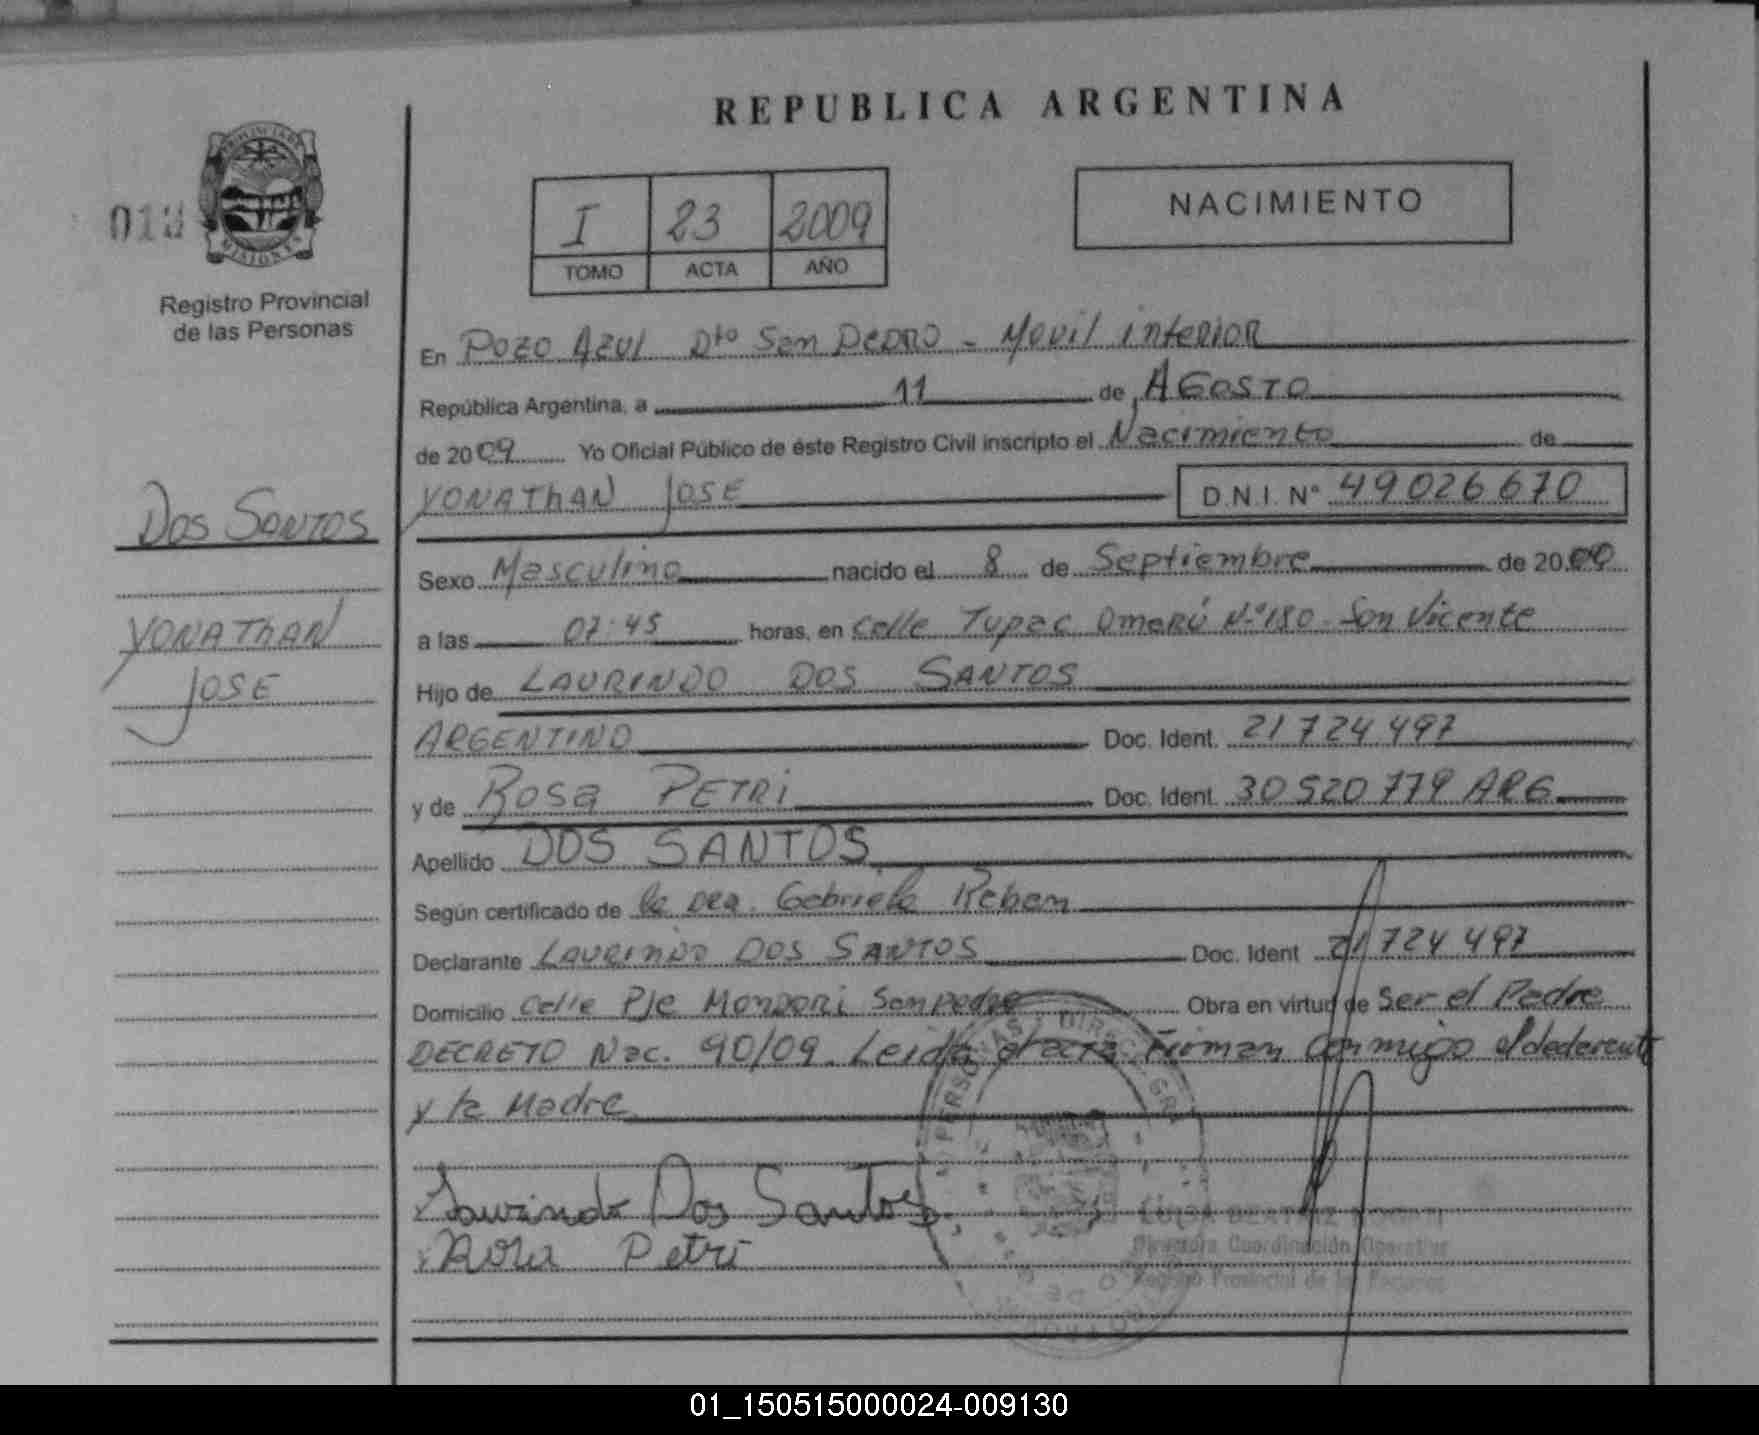 REPUBLICA ARGENTINA
I 23 2009
TOMO ACTA AÑO
NACIMIENTO
Registro Provincial
de las Personas
Dos Santos
YONAThAN
JOSE
En Pozo Azul Dto San Pedro - Movil interior
República Argentina, a 11 de AGOSTO
de 2009 Yo Oficial Público de éste Registro Civil inscripto el Nacimiento de
YONAThAN JOSE D.N.I. N° 49026670
Sexo Masculino nacido el 8 de Septiembre de 20
a las 07:45 horas, en calle Tupac Amarú N°180 - San Vicente
Hijo de LAURINDO DOS SANTOS
ARGENTINO Doc. Ident. 21 724 497
y de Rosa PETRI Doc. Ident. 30 520 779 ARG
Apellido DOS SANTOS
Según certificado de la Dra. Gabriela
Declarante LAURINDO DOS SANTOS Doc. Ident 21 724 497
Domicilio calle Pje San Pedro Obra en virtud de Ser el Padre
DECRETO Nac. 90/09 Leida el acta Firman Conmigo el
y la Madre
Laurindo Dos Santos
Rosa Petri
Directora Coordinación Operativa
Registro Provincial de las Personas
01_150515000024-009130